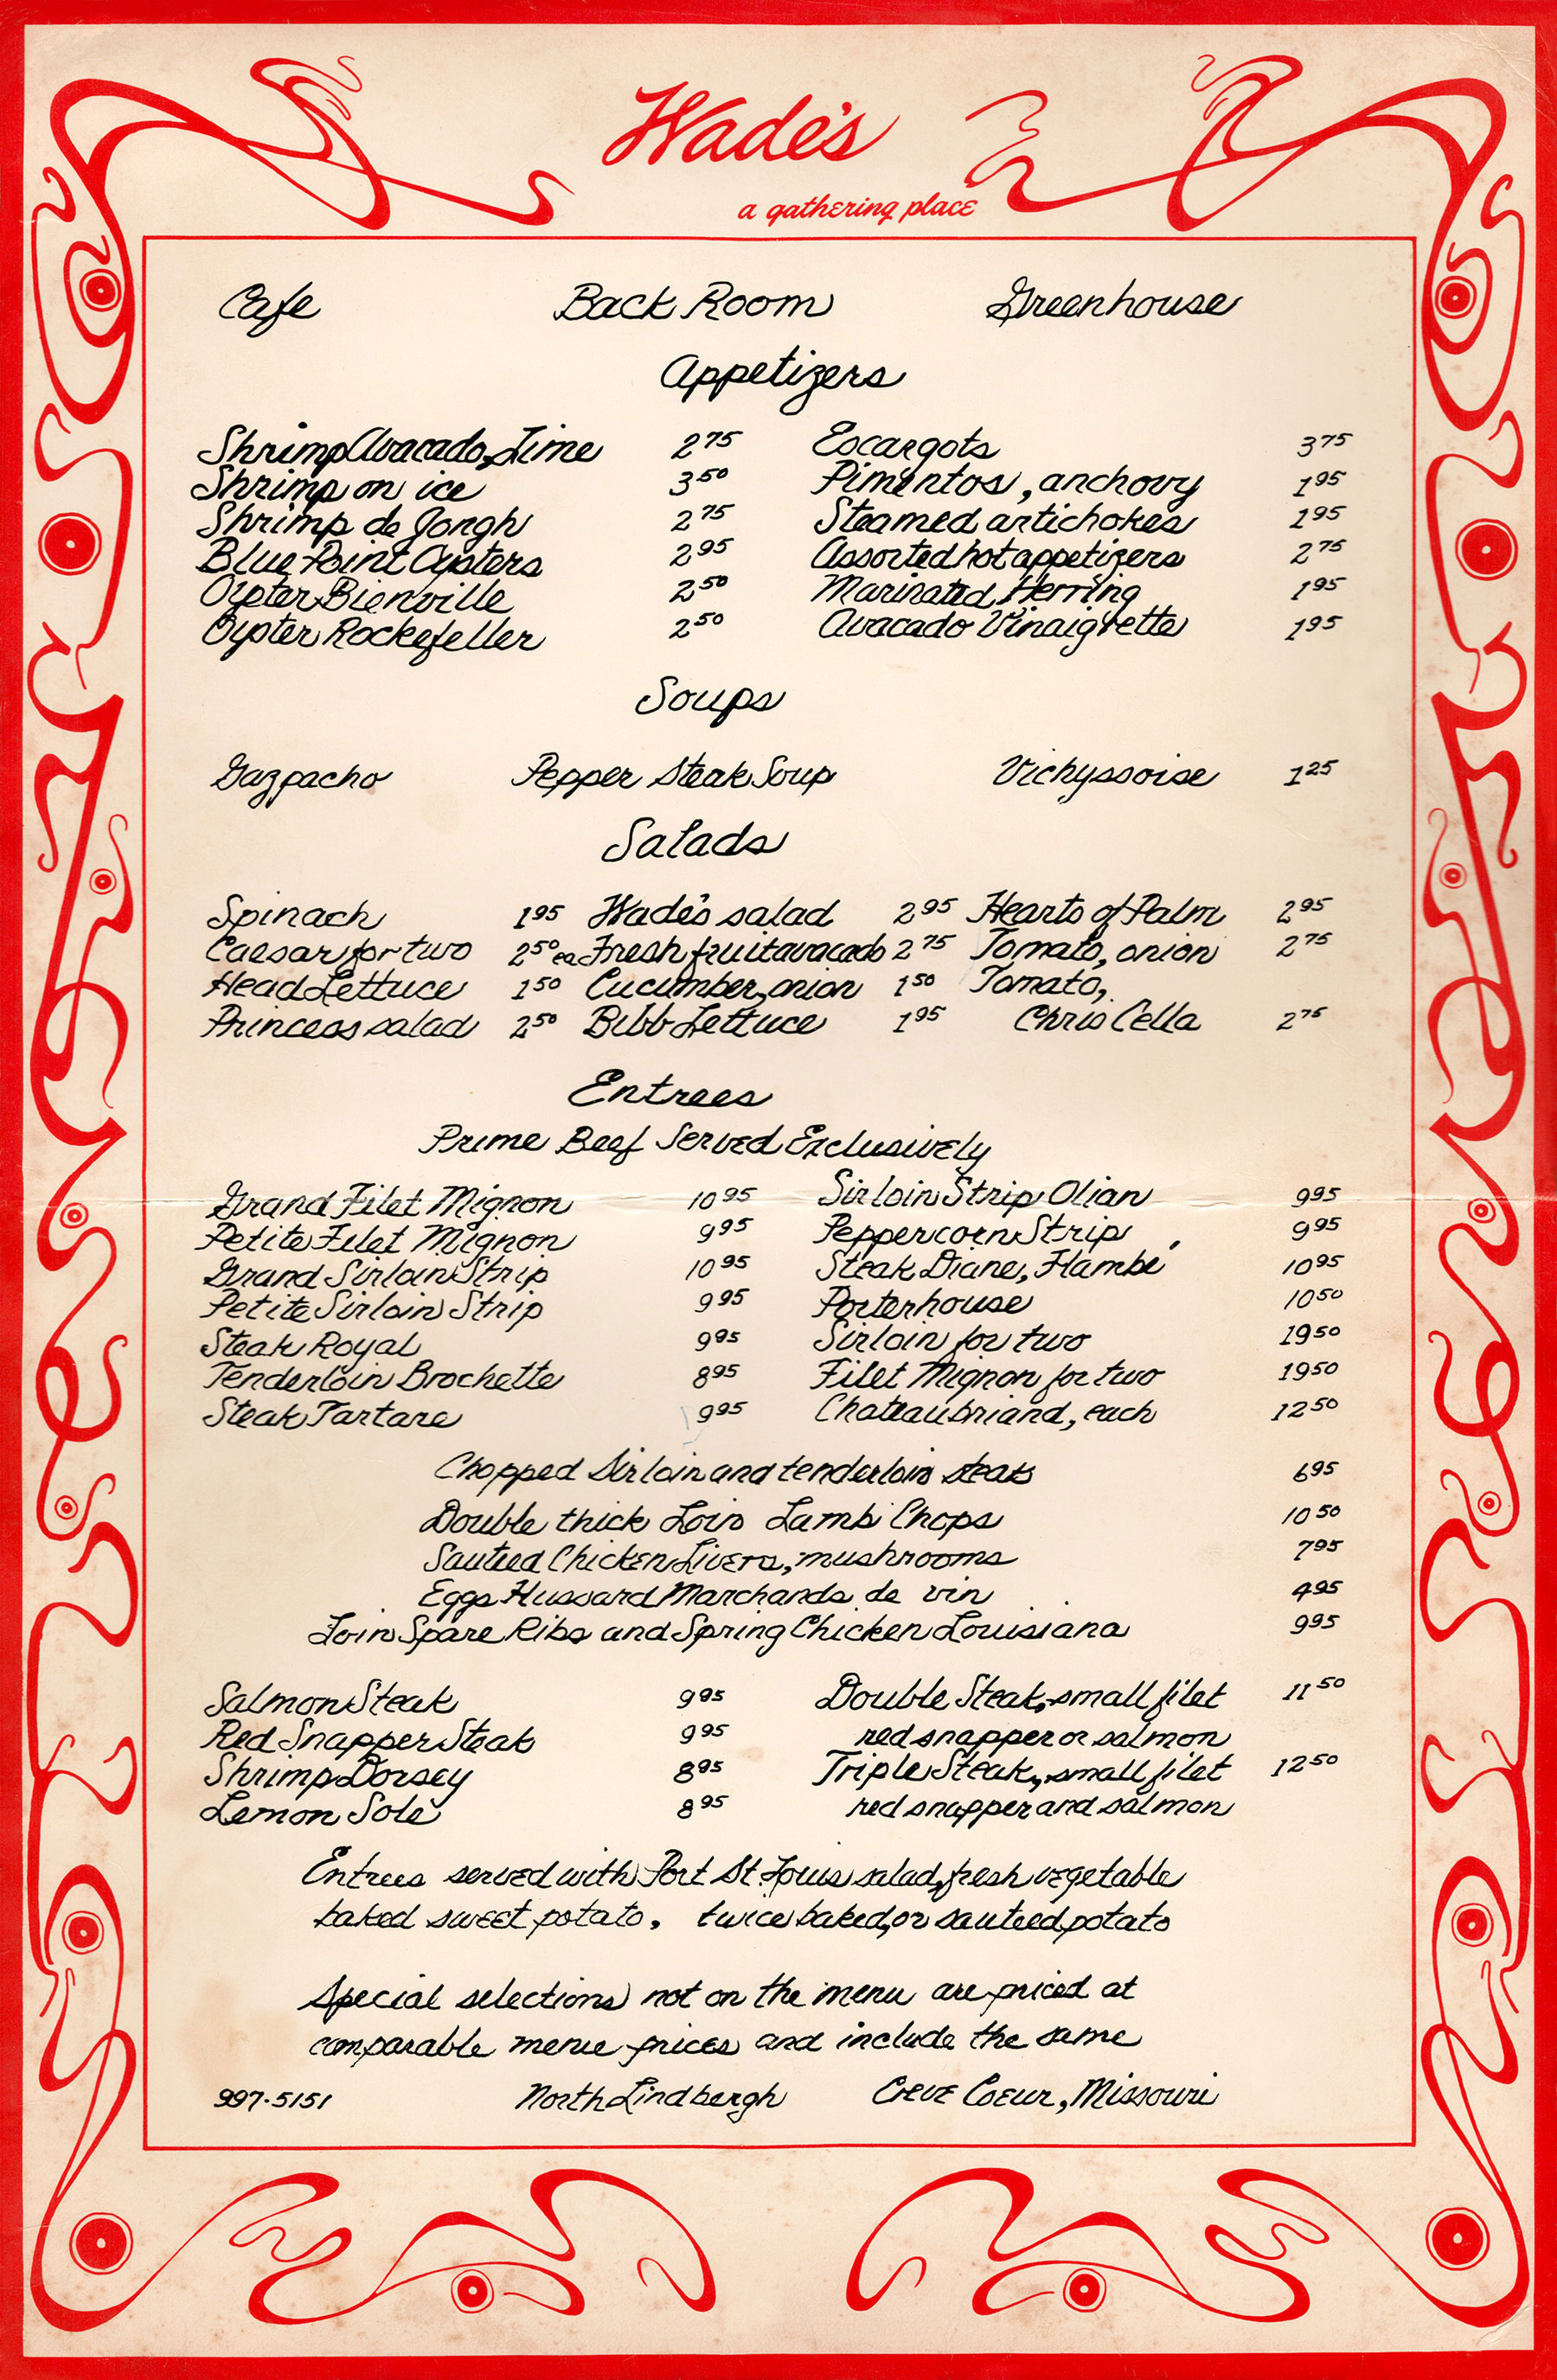 Wade's
a gathering place
Cafe Back Room Greenhouse
Appetizers
Shrimp Avacado, Lime 2 75 Escargots 3 75
Shrimp on ice 3 50 Pimentos, anchovy 1 95
Shrimp de Jongh 2 75 Steamed artichokes 1 95
Blue Point Oysters 2 95 Assorted hot appetizers 2 75
Oyster Bienville 2 50 Marinated Herring 1 95
Oyster Rockefeller 2 50 Avacado Vinaigrette 1 95
Soups
Gazpacho Pepper Steak Soup Vichyssoise 1 25
Salads
Spinach 1 95 Wade's salad 2 95 Hearts of Palm 2 95
Caesar for two 2 50 ea Fresh fruit avacado 2 75 Tomato, onion 2 75
Head Lettuce 1 50 Cucumber, onion 1 50 Tomato,
Princess salad 2 50 Bibb Lettuce 1 95 Chris Cella 2 75
Entrees
Prime Beef Served Exclusively
Grand Filet Mignon 10 95 Sirloin Strip Olian 9 95
Petite Filet Mignon 9 95 Peppercorn Strip 9 95
Grand Sirloin Strip 10 95 Steak Diane, Flambé 10 95
Petite Sirloin Strip 9 95 Porterhouse 10 50
Steak Royal 9 95 Sirloin for two 19 50
Tenderloin Brochette 8 95 Filet Mignon for two 19 50
Steak Tartare 9 95 Chateaubriand, each 12 50
Chopped Sirloin and tenderloin steak 6 95
Double thick Loin Lamb Chops 10 50
Sauteed Chicken Livers, mushrooms 7 95
Eggs Hussard Marchands de vin 4 95
Loin Spare Ribs and Spring Chicken Louisiana 9 95
Salmon Steak 9 95 Double Steak, small filet 11 50
Red Snapper Steak 9 95 red snapper or salmon
Shrimp Dorsey 8 95 Triple Steak, small filet 12 50
Lemon Sole 8 95 red snapper and salmon
Entrees served with Port St. Louis salad, fresh vegetable
baked sweet potato, twice baked, or sauteed potato
Special selections not on the menu are priced at
comparable menu prices and include the same
997·5151 North Lindbergh Creve Coeur, Missouri